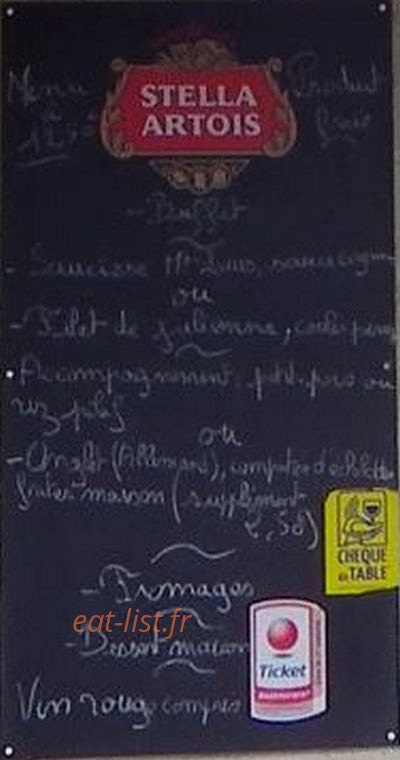 Menu
à
12,50
STELLA
ARTOIS
Produit
frais
- Buffet
- Saucisse
ou
- Filet de julienne,
- Accompagnement: petit-pois ou
riz pilaf
ou
- Onglet (Allemand), compotée d'échalotte
frites maison (supplément
2,50)
- Fromages
- Dessert maison
Vin rouge compris
CHEQUE
de TABLE
Ticket
Restaurant
eat-list.fr